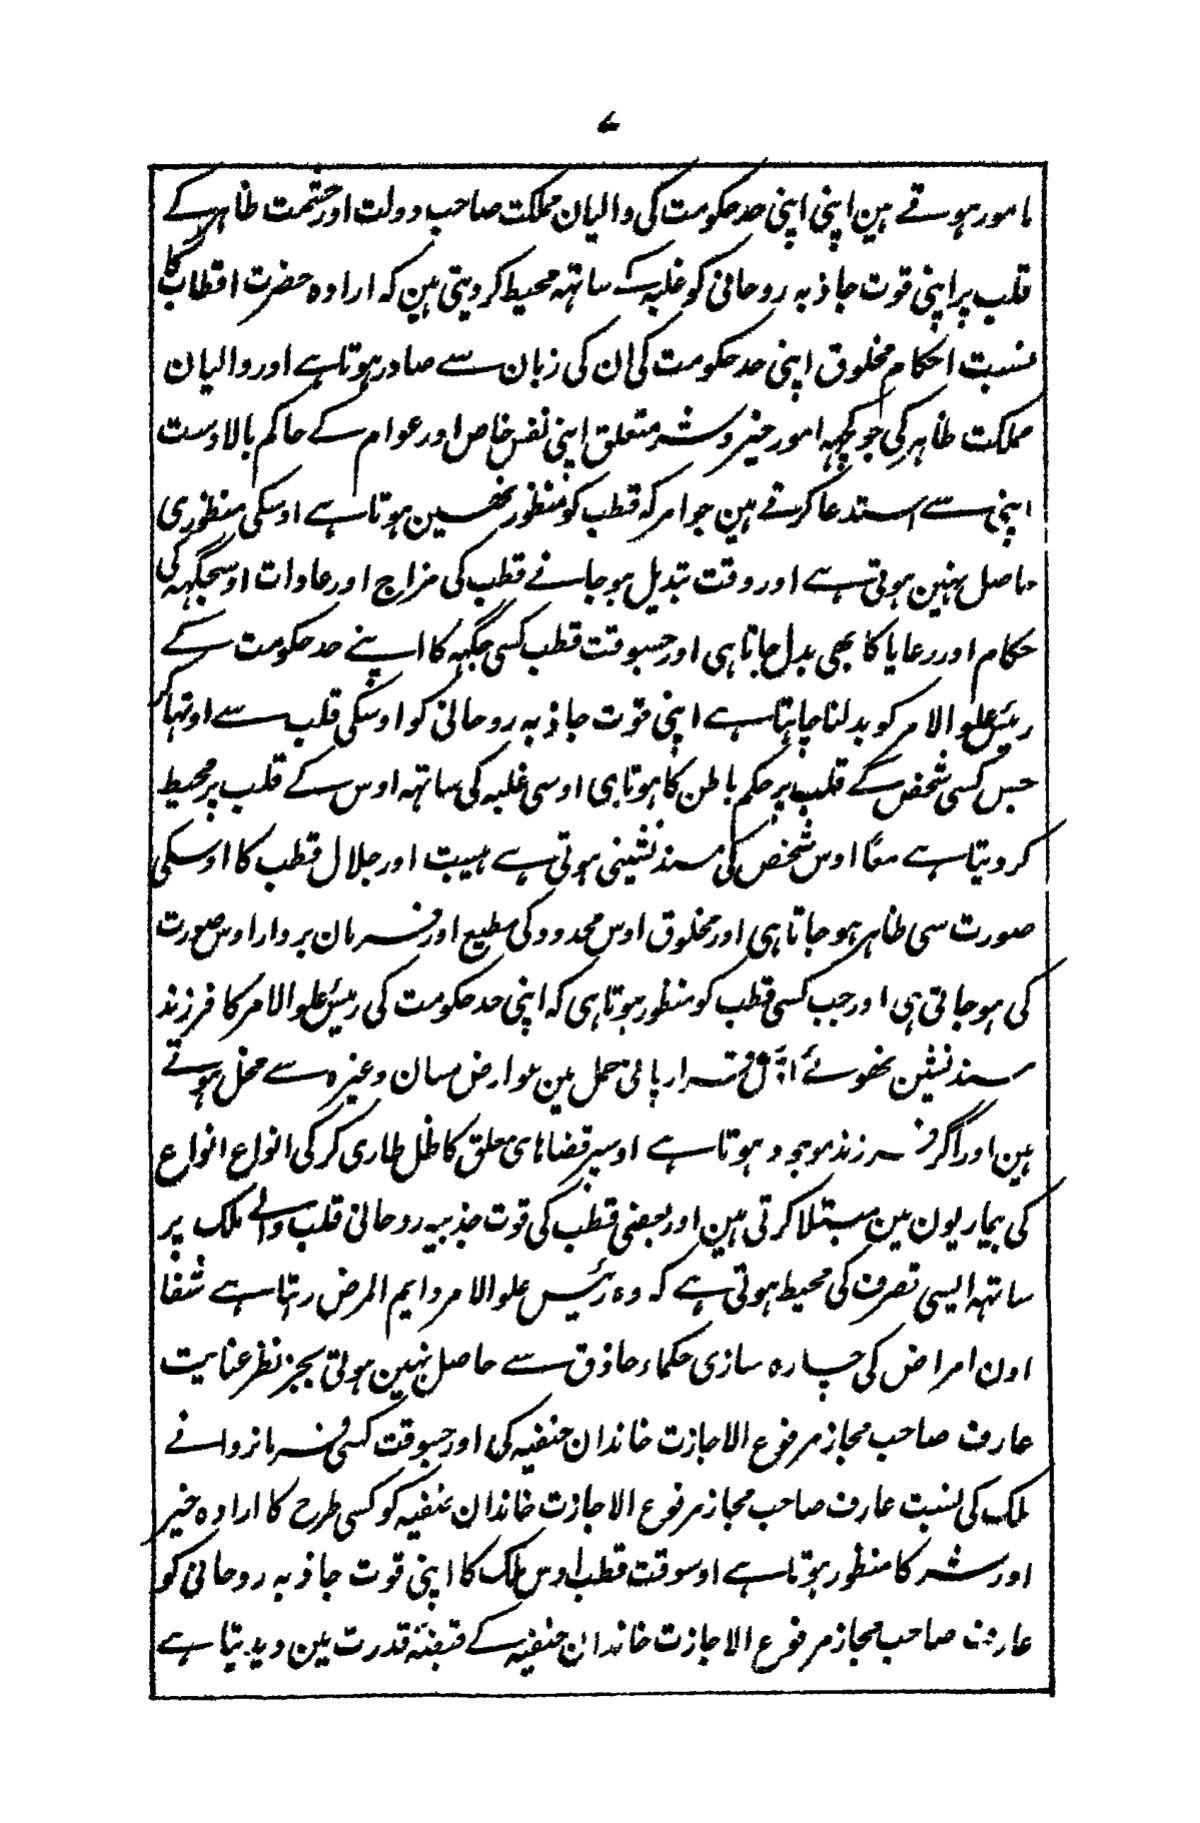 ۷
مامور ہوتے ہین اپنی اپنی حد حکومت کی والیان مملکت صاحب دولت اور حشمت ظاہر کے
قلب پر اپنی قوت جاذبہ روحانی کو غلبہ کے ساتہہ محیط کر دیتی ہین کہ ارادہ حضرت اقطاب کا
نسبت احکام مخلوق اپنی حد حکومت کی ان کی زبان سے صادر ہوتا ہے اور والیان
مملکت ظاہر کی جو کچہہ امور خیر و شر متعلق اپنی نفس خاص اور عوام کے حاکم بالا دست
اپنی سے استدعا کرتے ہین جو امر کہ قطب کو منظور نھین ہوتا ہے اوسکی منظوری
حاصل نہین ہوتی ہے اور وقت تبدیل ہو جانے قطب کی مزاج اور عادات اوسجگہہ کی
حکام اور رعایا کا بھی بدل جاتا ہی اور جسوقت قطب کسی جگہہ کا اپنے حد حکومت کے
رئیس علو الامر کو بدلنا چاہتا ہے اپنی قوت جاذبہ روحانی کو اوسکی قلب سے اوٹہا کر
جس کسی شخص کے قلب پر حکم باطن کا ہوتا ہی اوسی غلبہ کی ساتہہ اوس کے قلب پر محیط
کر دیتا ہے معًا اوس شخص کی مسند نشینی ہوتی ہے ہیبت اور جلال قطب کا اوسکی
صورت سی ظاہر ہو جاتا ہی اور مخلوق اوس محدود کی مطیع اور فرمان بردار اوس صورت
کی ہو جاتی ہی اور جب کسی قطب کو منظور ہوتا ہی کہ اپنی حد حکومت کی رئیس علو الامر کا فرزند
مسند نشین نھوئے قرار پائی حمل مین عوارض وغیرہ سے مخل ہوتے
ہین اور اگر فرزند موجود ہوتا ہے اوسپر قضاہای معلق کا ظل طاری کر کی انواع انواع
کی بیماریون مین مبتلا کرتی ہین اور بعضی قطب کی قوت جذبیہ روحانی قلب والے ملک پر
ساتہہ ایسی تصرف کی محیط ہوتی ہے کہ وہ رئیس علو الامر دایم المرض رہتا ہے شفا
اون امراض کی چارہ سازی حکماء حاذق سے حاصل نہین ہوتی بجز نظر عنایت
عارف صاحب مجاز مرفوع الاجازت خاندان حنفیہ کی اور جسوقت کسی فرمانروائے
ملک کی نسبت عارف صاحب مجاز مرفوع الاجازت خاندان حنفیہ کو کسی طرح کا ارادہ خیر
اور شر کا منظور ہوتا ہے اوسوقت قطب اوس ملک کا اپنی قوت جاذبہ روحانی کو
عارف صاحب مجاز مرفوع الاجازت خاندان حنفیہ کے قبضئہ قدرت مین دیدیتا ہے